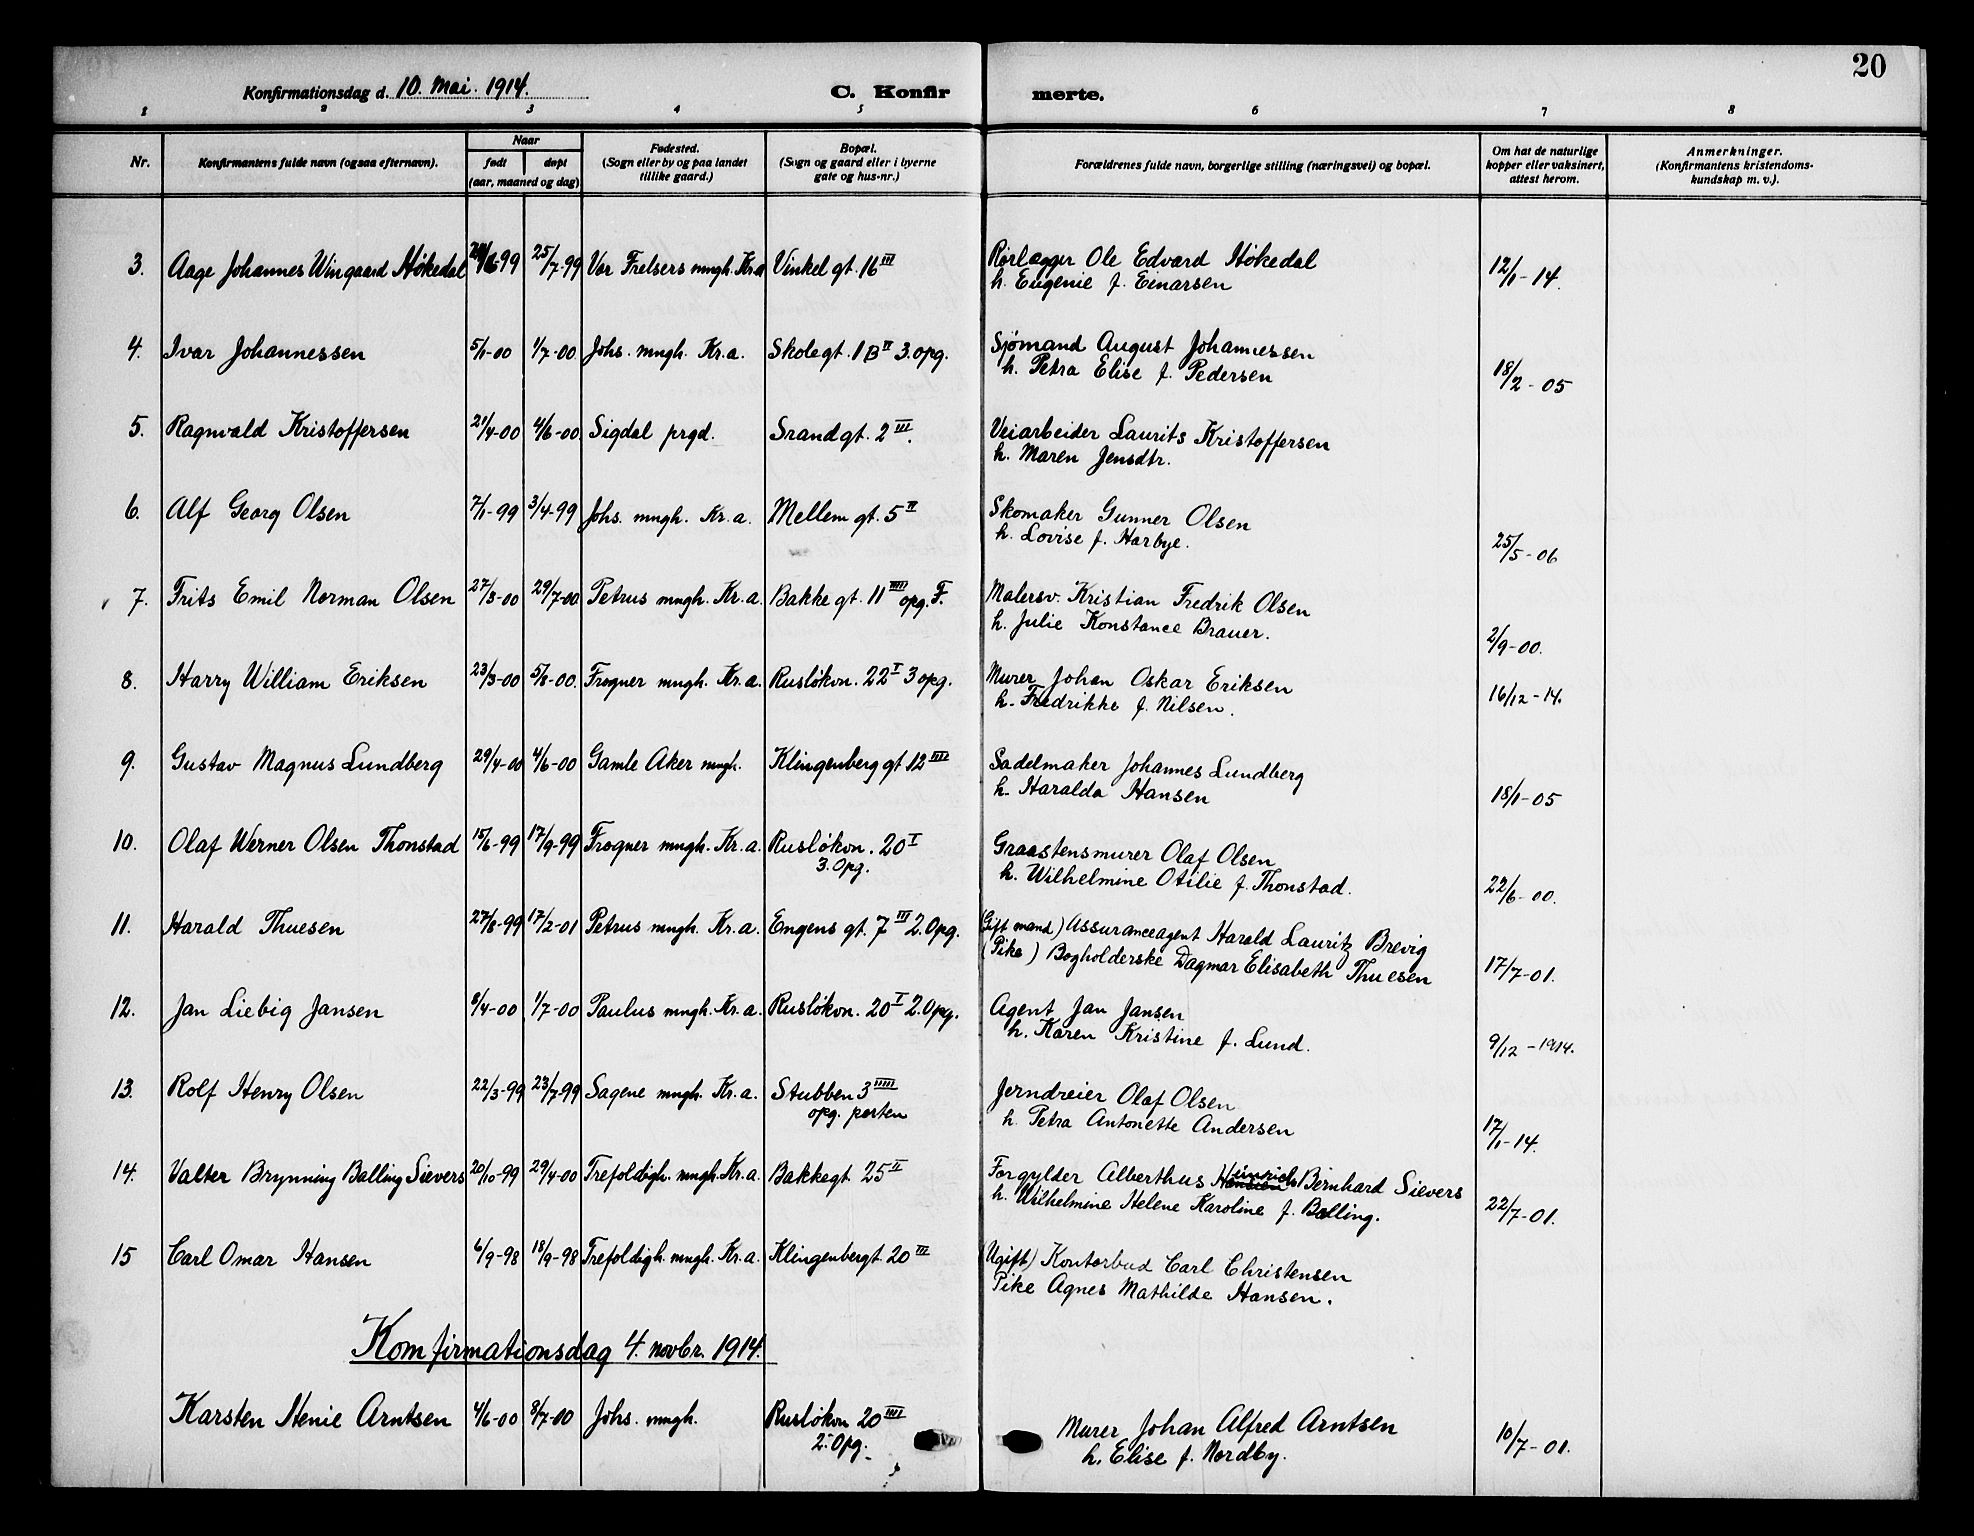 20
Konfirmationsdag d. 10. Mai. 1914. C. Konfir merte.
1 2 3 4 5 6 7 8
Nr. Konfirmantens fulde navn (ogsaa efternavn). Naar født døpt (aar, maaned og dag) Fødested. (Sogn eller by og paa landet tillike gaard.) Bopæl. (Sogn og gaard eller i byerne gate og hus-nr.) Forældrenes fulde navn, borgerlige stilling (næringsvei) og bopæl. Om hat de naturlige kopper eller vaksinert, attest herom. Anmerkninger. (Konfirmantens kristendoms-kundskap m. v.).
3. Aage Johannes Wingaard Høkedal /6-99 25/7-99 Vor Frelsers mngh. Kr.a Vinkel gt. 16 III Rørlægger Ole Edvard Høkedal 12/1-14.
h. Eugenie f. Einarsen
4. Ivar Johannessen 5/1-00 1/7-00 Johs. mngh. Kr.a. Skolegt. 1 B II 3.opg. Sjømand August Johannessen
h. Petra Elise f. Pedersen 18/2-05
5. Ragnvald Kristoffersen 21/4-00 4/6-00 Sigdal prgd. Srandgt. 2 III. Veiarbeider Laurits Kristoffersen
h. Maren Jensdtr.
6. Alf Georg Olsen 7/1-99 3/4-99 Johs. mngh. Kr.a. Mellem gt. 5 II Skomaker Gunner Olsen
h. Lovise f. Harbye. 25/5-06
7. Frits Emil Norman Olsen 27/3-00 29/7-00 Petrus mngh. Kr.a. Bakke gt. 11 IIII opg. F. Malersv. Kristian Fredrik Olsen
h. Julie Konstance Brauer. 2/9-00.
8. Harry William Eriksen 23/3-00 5/8-00. Frogner mngh. Kr.a. Rusløkvn. 22 I 3 opg. Murer Johan Oskar Eriksen 16/12-14.
h. Fredrikke f. Nilsen.
9. Gustav Magnus Lundberg 29/4-00 4/6-00 Gamle Aker mngh. Klingenberg gt 12 III Sadelmaker Johannes Lundberg
h. Haralda Hansen 18/1-05
10. Olaf Werner Olsen Thonstad 15/6-99 17/9-99 Frogner mngh. Kr.a. Rusløkvn. 20 I Graastensmurer Olaf Olsen
3. Opg. h. Wilhelmine Otilie f. Thonstad. 22/6-00.
11. Harald Thuesen 27/8-99 17/2-01 Petrus mngh. Kr.a. Engens gt. 7 III 2.Opg. (Gift mand) Assuranceagent Harald Lauritz Brevig
(Pike) Bogholderske Dagmar Elisabeth Thuesen 17/7-01.
12. Jan Liebig Jansen 8/4-00 1/7-00 Paulus mngh. Kr.a. Rusløkvn. 20 I 2.Opg. Agent Jan Jansen
h. Karen Kristine f. Lund. 9/12-1914.
13. Rolf Henry Olsen 22/3-99 23/7-99 Sagene mngh. Kr.a. Stubben 3 IIIII Jerndreier Olaf Olsen
opg. porten h. Petra Antonette Andersen 17/1-14.
14. Valter Brynning Balling Sievers 20/10-99 29/4-00 Trefoldigh. mngh. Kr.a. Bakkegt 25 II Forgylder Alberthus Heinrich Bernhard Sievers
h. Wilhelmine Helene Karoline f. Balling. 22/7-01.
15 Carl Omar Hansen 6/9-98 18/9-98 Trefoldigh. mngh. Kr.a. Klingenbergt 20 III (Ugift) Kontorbud Carl Christensen
Pike Agnes Mathilde Hansen.
Komfirmationsdag 4. novbr. 1914.
Karsten Henie Arntsen 4/6-00 8/7-00 Johs. mngh. Rusløkvn 20 IIII Murer Johan Alfred Arntsen 10/7-01.
2. Opg. h. Elise f. Nordby.